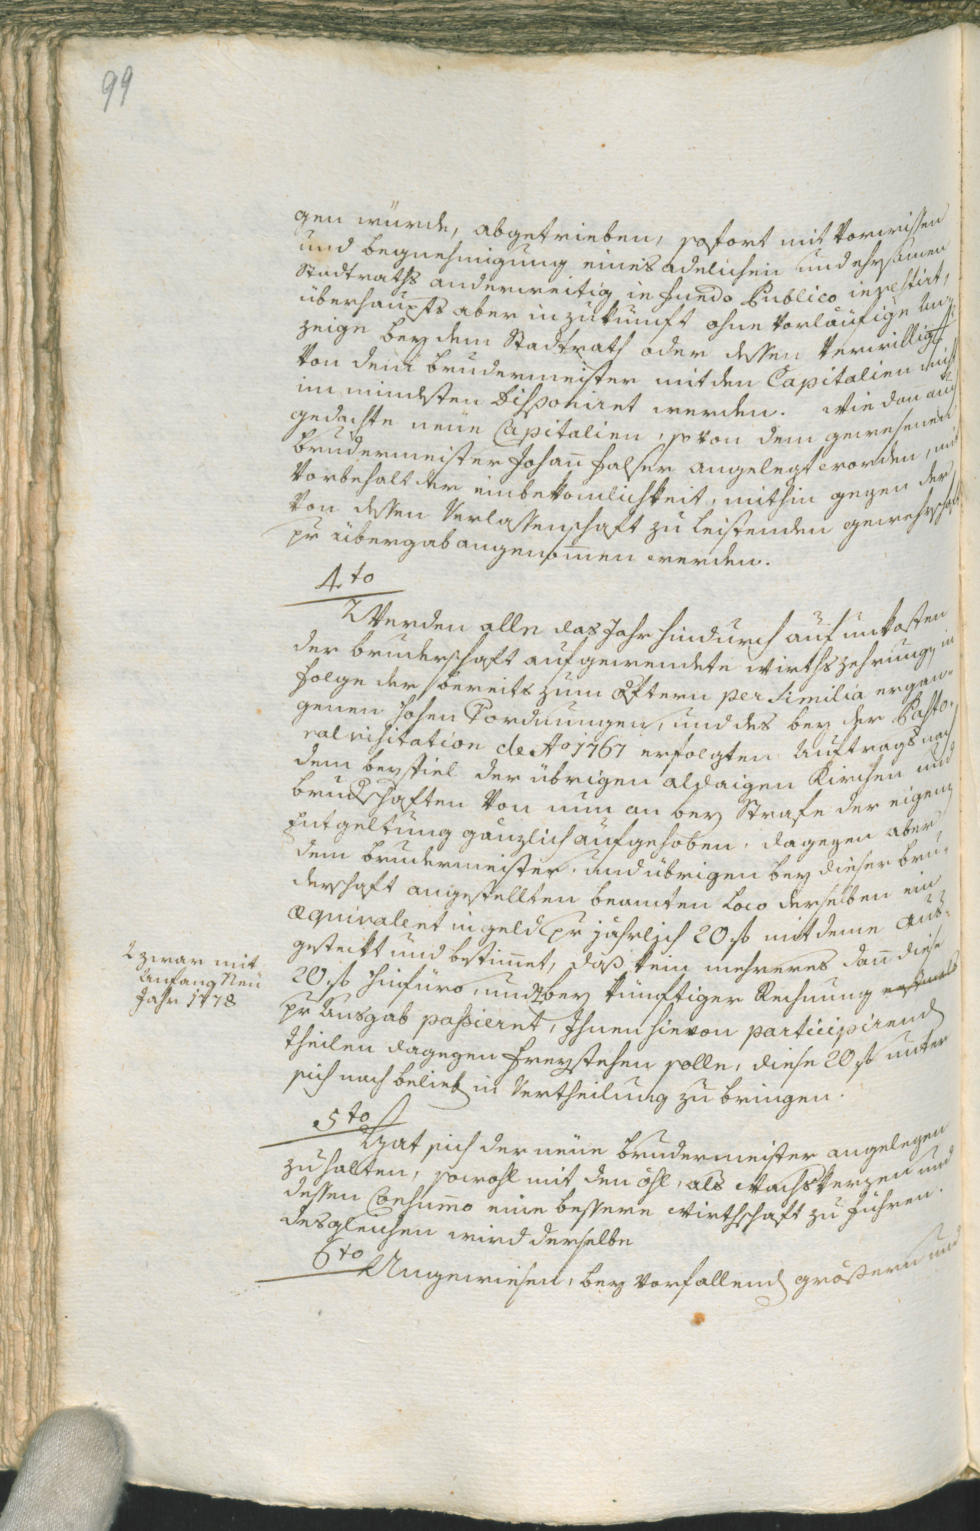 99
gen würde, abgetrieben, sofort mit Vorwissen
und begnehmigung eines adelichen und ehrsamen
Stadtraths anderweitig in fundo Publico investirt,
überhaupts aber in zukunft ohne vorläufige An-
zeige bey dem Stadtrath oder dessen Verwilligg
von dem brudermeister mit den Capitalien nicht
im mindesten disponiret werden. Wie dan̄ auch
gedachte neüe Capitalien, so von dem gewesenen
brudermeister Johan̄ Falser angelegt worden, mit
Vorbehalt der einbekom̄lichkeit, mithin gegen der
von dessen Verlassenschaft zu leistenden gewehrschaft
pr übergab angenom̄en werden.
4to
Werden alle das Jahr hindurch auf unkosten
der bruderschaft aufgewendete wirthszehrungen in
folge der bereits zum öftern per similia ergan-
genen hohen Verordnungen, und des bey der Pasto-
ral visitation de Ao 1767 erfolgten Auftrags nach
dem beyspiel der übrigen alhaigen Kirchen und
brudschaften von nun an bey Strafe der eigenen
Entgeltung gänzlich aufgehoben. dagegen aber
dem brudermeister, und übrigen bey dieser bru-
derschaft angestellten beamten loco derselben ein
æquivalent in geld pr jährlich 20 f mit deme aus-
gesteckt und bestim̄et, daß kein mehreres dan̄ diese
20 f hinfüro, und bey künftiger Rechnung erstmals
pr Ausgab passieret, Ihnen hievon participirend
theilen dagegen freystehen solle, diese 20 f unter
sich nach belieb in Vertheilung zu bringen.
zwar mit
Anfang Neü
Jahr 1778
5to
Hat sich der neüe brudermeister angelegen
zu halten, sowohl mit den öhl, als wachskerzen und
dessen Consum̄o eine bessere wirthschaft zu führen.
desgleichen wird derselbe
6to
Angewiesen, bey vorfallend größern und